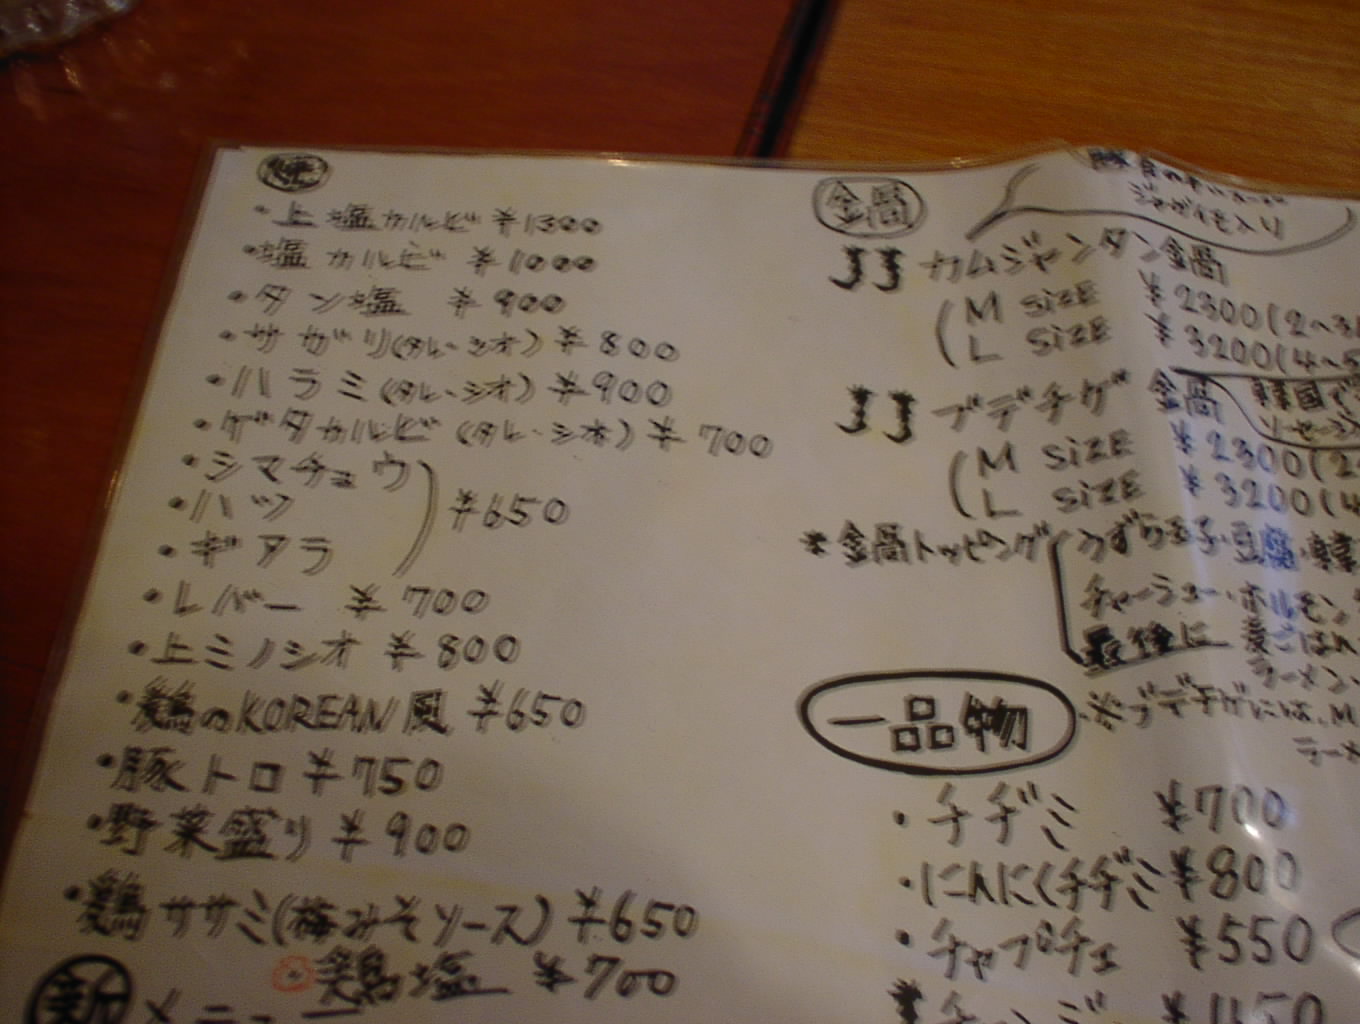 ・上塩カルビ ¥1300
・塩カルビ ¥1000
・タン塩 ¥900
・サガリ(タレ・シオ) ¥800
・ハラミ(タレ・シオ) ¥900
・ゲタカルビ(タレ・シオ) ¥700
・シマチョウ
・ハツ ¥650
・ギアラ
・レバー ¥700
・上ミノシオ ¥800
・鶏のKOREAN風 ¥650
・豚トロ ¥750
・野菜盛り ¥900
・鶏ササミ(梅みそソース) ¥650
鶏塩 ¥700
新メニュー
鍋
ジャガイモ入り
JJ カムジャンタン鍋
M SIZE ¥2300(2~3
L SIZE ¥3200(4~5
JJ プデチゲ鍋
韓国で
M SIZE ¥2300(2
L SIZE ¥3200(4
*鍋トッピング
うずら玉子・豆腐・韓
チャーシュー・ホルモン
最後に 麦ごはん
ラーメン
※プデチゲには、M
ラーメ
一品物
・チヂミ ¥700
・にんにくチヂミ ¥800
・チャプチェ ¥550